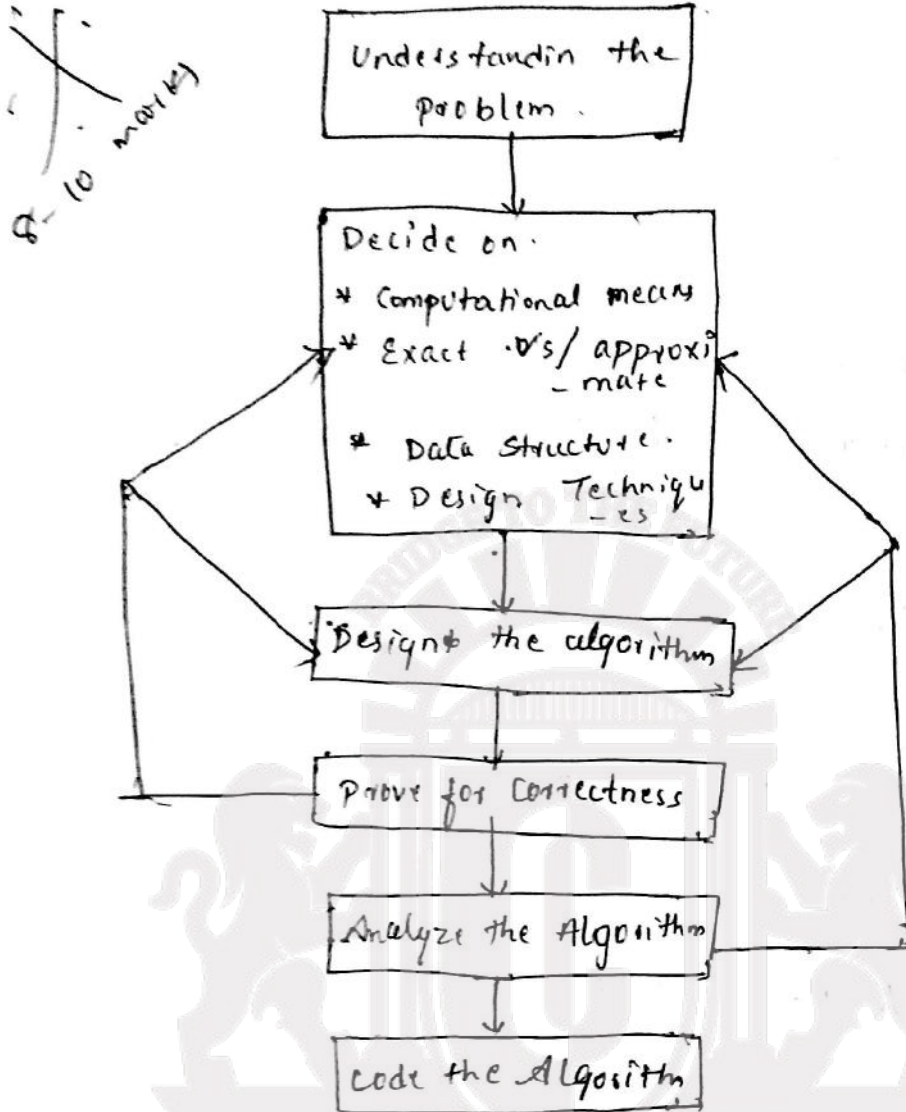 8-10 marks
Understandin the
problem.
Decide on.
* Computational means
* Exact .Vs/ approxi
-mate
* Data Structure.
* Design Techniqu
-es
Design the algorithm
Prove for Correctness
Analyze the Algorithm
code the Algorithm
BRIDGE TO THE FUTURE